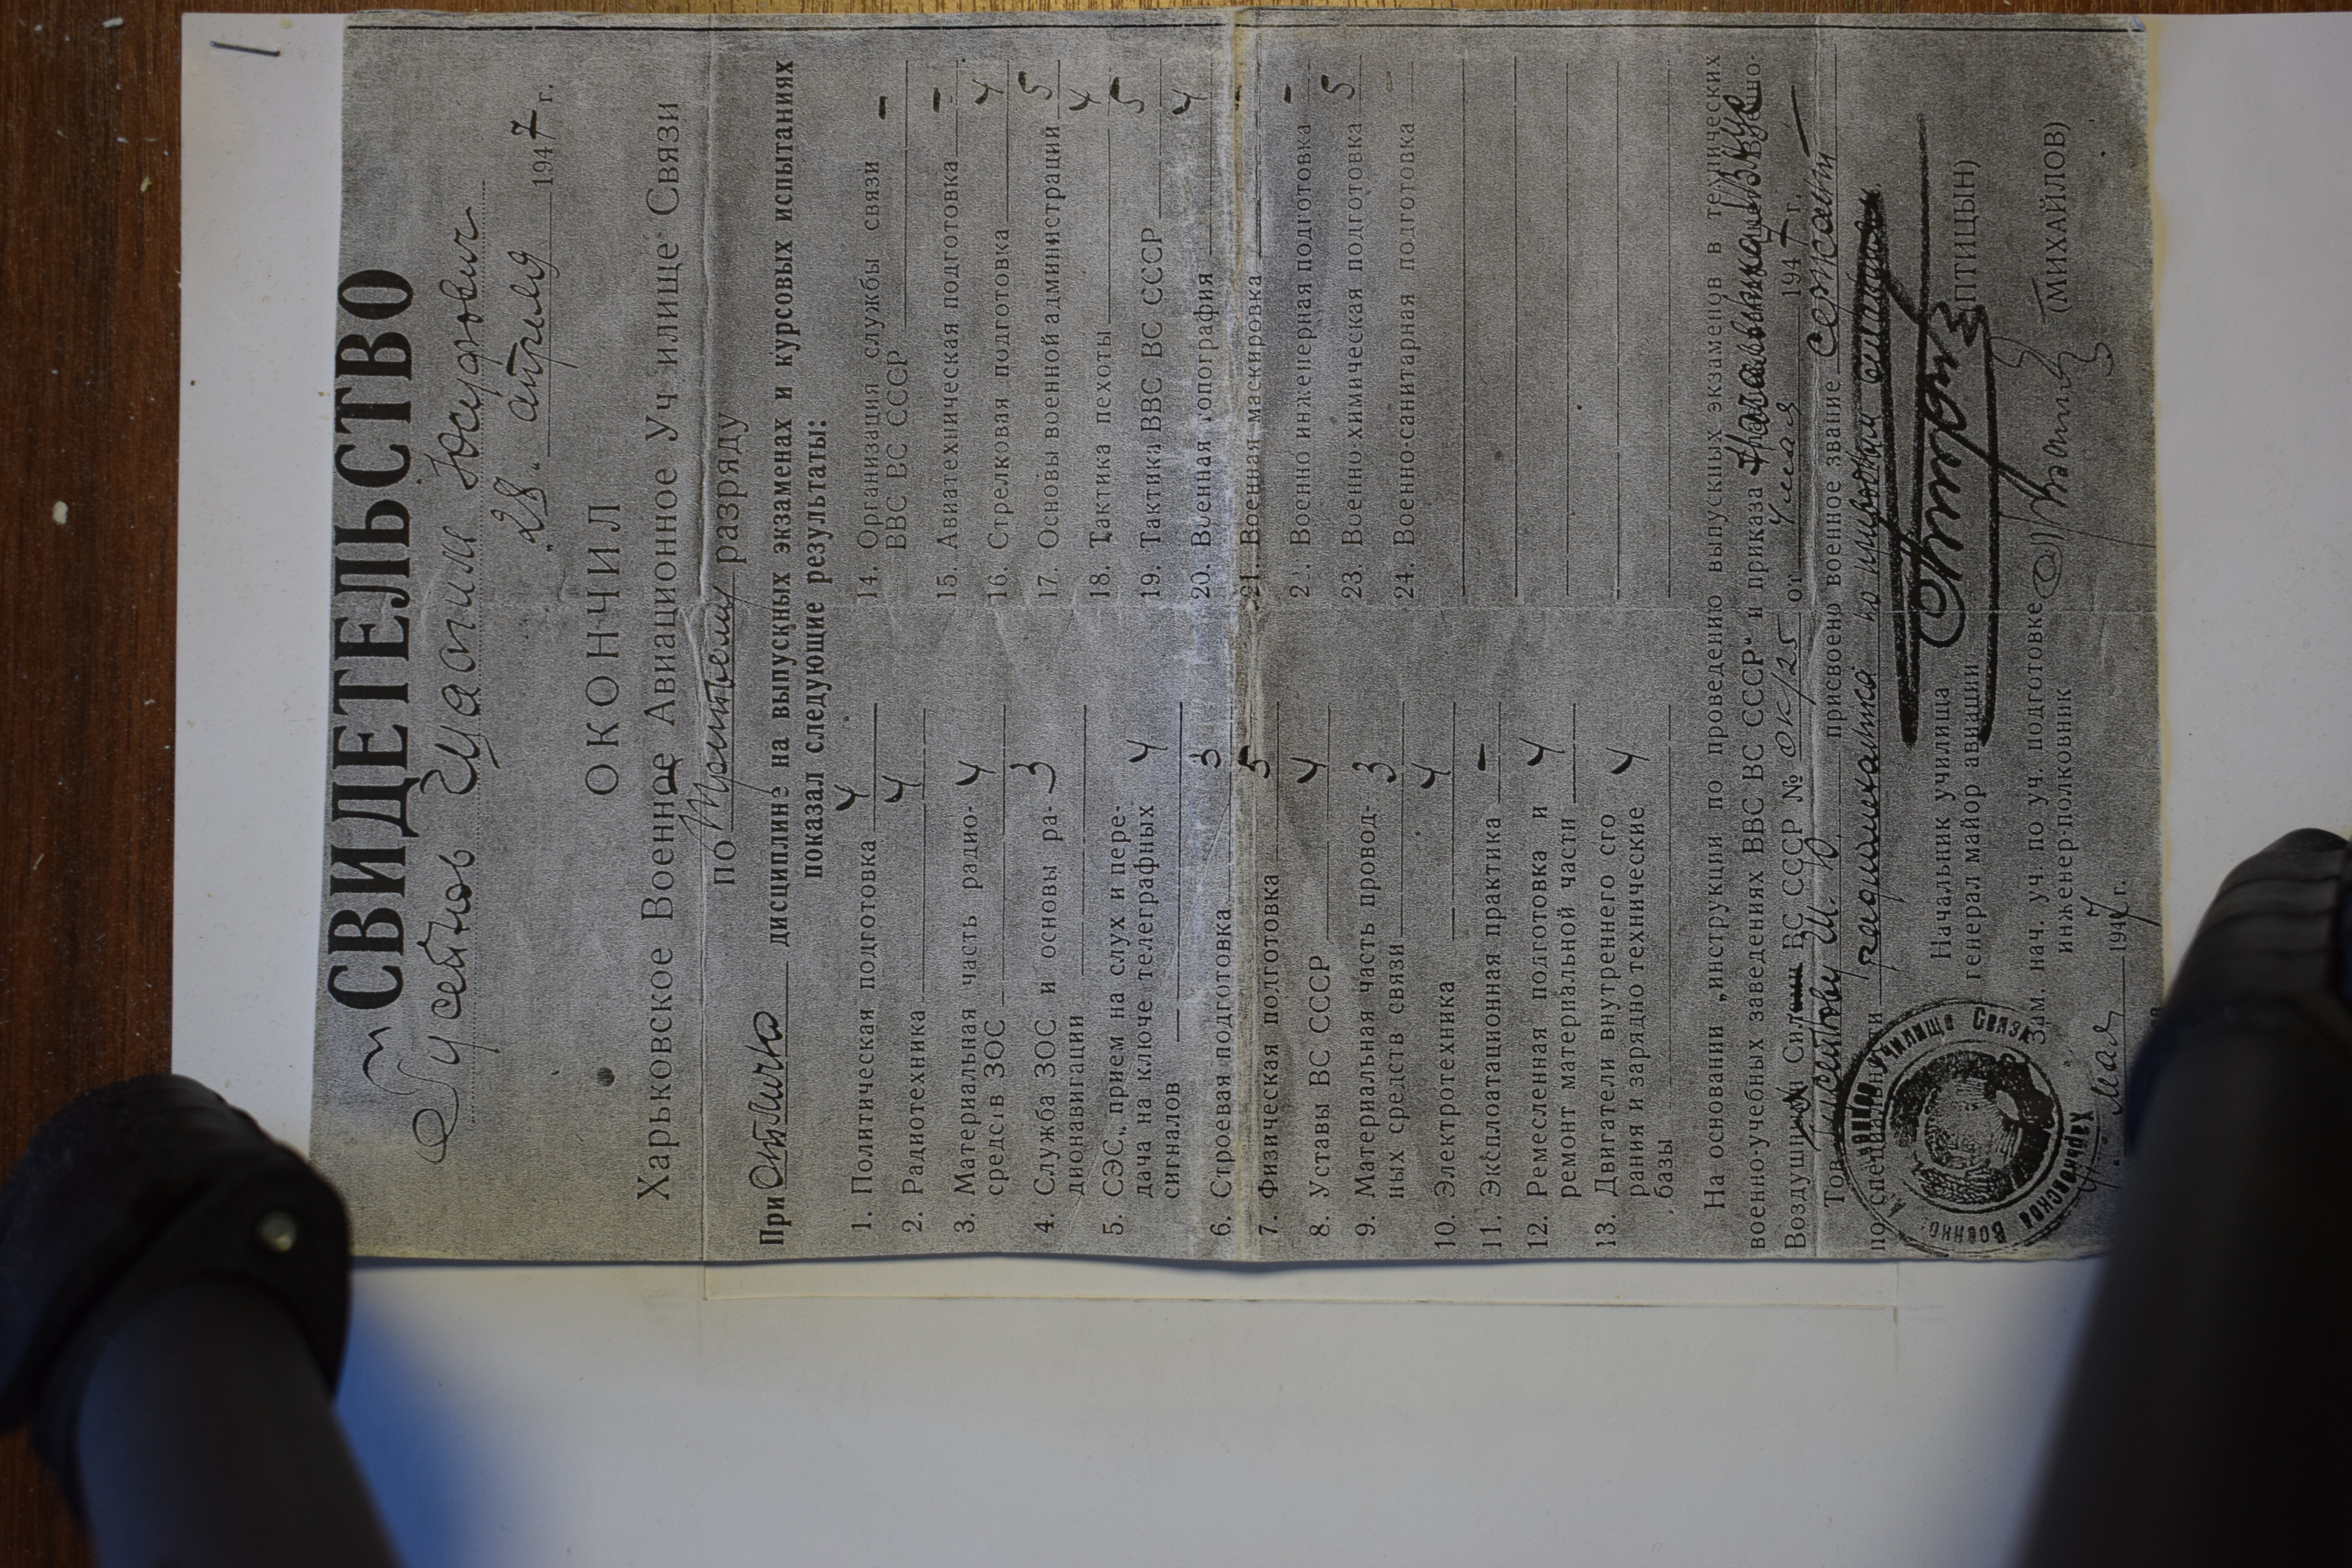 СВИДЕТЕЛЬСТВО
Гусейнов Исмагим Юсуфович
„28“ апреля 1947 г.
ОКОНЧИЛ
Харьковское Военное Авиационное Училище Связи
по третьему разряду
При отлично дисциплине на выпускных экзаменах и курсовых испытаниях
показал следующие результаты:
1. Политическая подготовка 4
2. Радиотехника 4
3. Материальная часть радио- 4
средств ЗОС
4. Служба ЗОС и основы ра- 3
дионавигации
5. СЭС, прием на слух и пере-
дача на ключе телеграфных 4
сигналов
6. Строевая подготовка 3
7. Физическая подготовка 5
8. Уставы ВС СССР 4
9. Материальная часть провод- 3
ных средств связи
10. Электротехника 4
11. Эксплоатационная практика –
12. Ремесленная подготовка и 4
ремонт материальной части
13. Двигатели внутреннего сго 4
рания и зарядно технические
базы
14. Организация службы связи –
ВВС ВС СССР
15. Авиатехническая подготовка –
16. Стрелковая подготовка 4
17. Основы военной администрации 5
18. Тактика пехоты 4
19. Тактика ВВС ВС СССР 5
20. Военная топография 4
21. Военная маскировка –
22. Военно инженерная подготовка –
23. Военно-химическая подготовка 5
24. Военно-санитарная подготовка
На основании „инструкции по проведению выпускных экзаменов в технических
военно-учебных заведениях ВВС ВС СССР“ и приказа Начальника
Воздушных Сил ВС СССР № ОК/25 от 4 мая 1947 г.
Тов. Гусейнову И. Ю. присвоено военное звание Сержант
по специальности радиомеханика по
Начальник училища
генерал майор авиации (ПТИЦЫН)
Зам. нач. уч. по уч. подготовке
инженер-полковник (МИХАЙЛОВ)
„4“ мая 1947 г.
Харьковское Военно Училище Связи